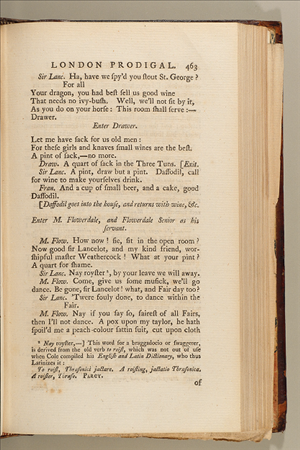 LONDON PRODIGAL. 463
Sir Lanc. Ha, have we ſpy'd you ſtout St. George?
For all
Your dragon, you had beſt ſell us good wine
That needs no ivy-buſh. Well, we'll not ſit by it,
As you do on your horſe: This room ſhall ſerve:—
Drawer.
Enter Drawer.
Let me have ſack for us old men:
For theſe girls and knaves ſmall wines are the beſt.
A pint of ſack,—no more.
Draw. A quart of ſack in the Three Tuns. [Exit.
Sir Lanc. A pint, draw but a pint. Daffodil, call
for wine to make yourſelves drink.
Fran. And a cup of ſmall beer, and a cake, good
Daffodil.
[Daffodil goes into the houſe, and returns with wine, &c.
Enter M. Flowerdale, and Flowerdale Senior as his
ſervant.
M. Flow. How now! fie, ſit in the open room?
Now good ſir Lancelot, and my kind friend, wor-
ſhipful maſter Weathercock! What at your pint?
A quart for ſhame.
Sir Lanc. Nay royſter ¹, by your leave we will away.
M. Flow. Come, give us ſome muſick, we'll go
dance. Be gone, ſir Lancelot! what, and Fair day too?
Sir Lanc. 'Twere fouly done, to dance within the
Fair.
M. Flow. Nay if you ſay ſo, faireſt of all Fairs,
then I'll not dance. A pox upon my taylor, he hath
ſpoil'd me a peach-colour ſattin ſuit, cut upon cloth
¹ Nay royſter,—] This word for a braggadocio or ſwaggerer,
is derived from the old verb to roiſt, which was not out of uſe
when Cole compiled his Engliſh and Latin Dictionary, who thus
Latinizes it:
To roiſt, Thraſonicè jactare. A roiſting, jactatio Thraſonica.
A roiſter, Thraſo. PERCY.
of